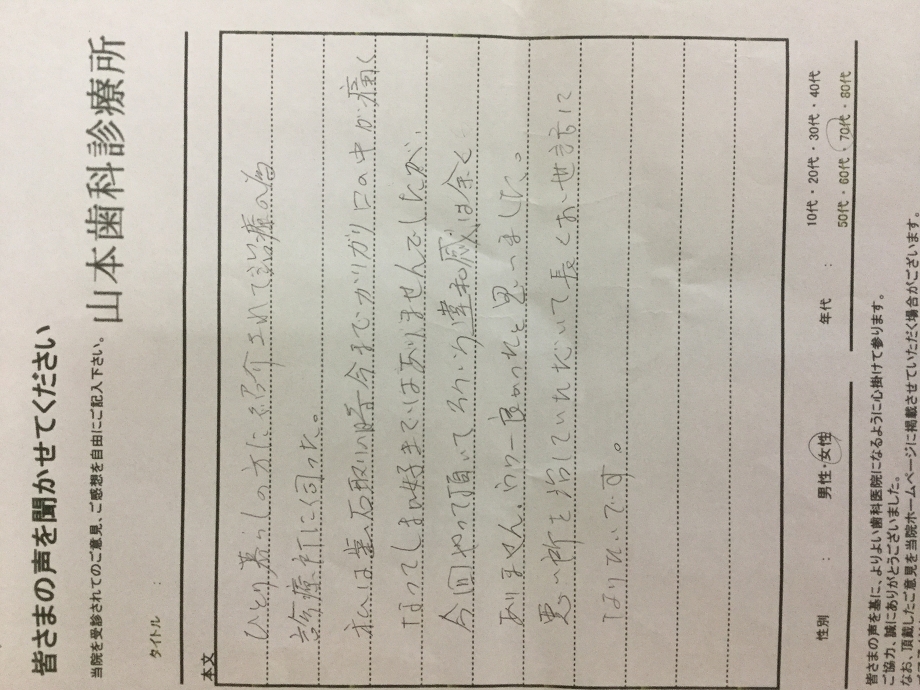 皆さまの声を聞かせてください
当院を受診されてのご意見、ご感想を自由にご記入下さい。
山本歯科診療所
タイトル :
本文
ひとり暮らしの方に紹介されて治療の為
診療所に伺った。
私は歯石取りの時今までガリガリ口の中が痛く
なってしまい好きではありませんでしたが、
今回やって頂いて 違和感は余り
ありません。 良かったと思いました。
悪い所を治していただいて長くお世話に
なりたいです。
性別 : 男性・女性
年代 : 10代・20代・30代・40代
50代・60代・70代・80代
皆さまの声を基に、よりよい歯科医院になるように心掛けて参ります。
ご協力、誠にありがとうございました。
なお、頂戴したご意見を当院ホームページに掲載させていただく場合がございます。